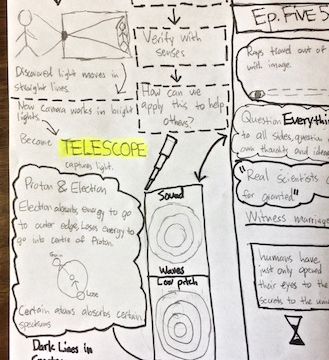 Discovered light moves in
straight lines
Now camera works in bright
lights
Became TELESCOPE
captures light.
Proton & Electron
Electron absorbs energy to go
to outer edge, loses energy to
go into centre of Proton.
Lose
Certain atoms absorbs certain
spectrums
Dark Lines in
Verify with
senses
How can we
apply this to help
others?
Sound
Waves
Low pitch
Ep. Five
Rays travel out
with image.
Question Everything
to all sides, question
own thoughts and ideas
"Real Scientists
for granted"
Witness marriage
humans have
just only opened
their eyes to the
secrets to the